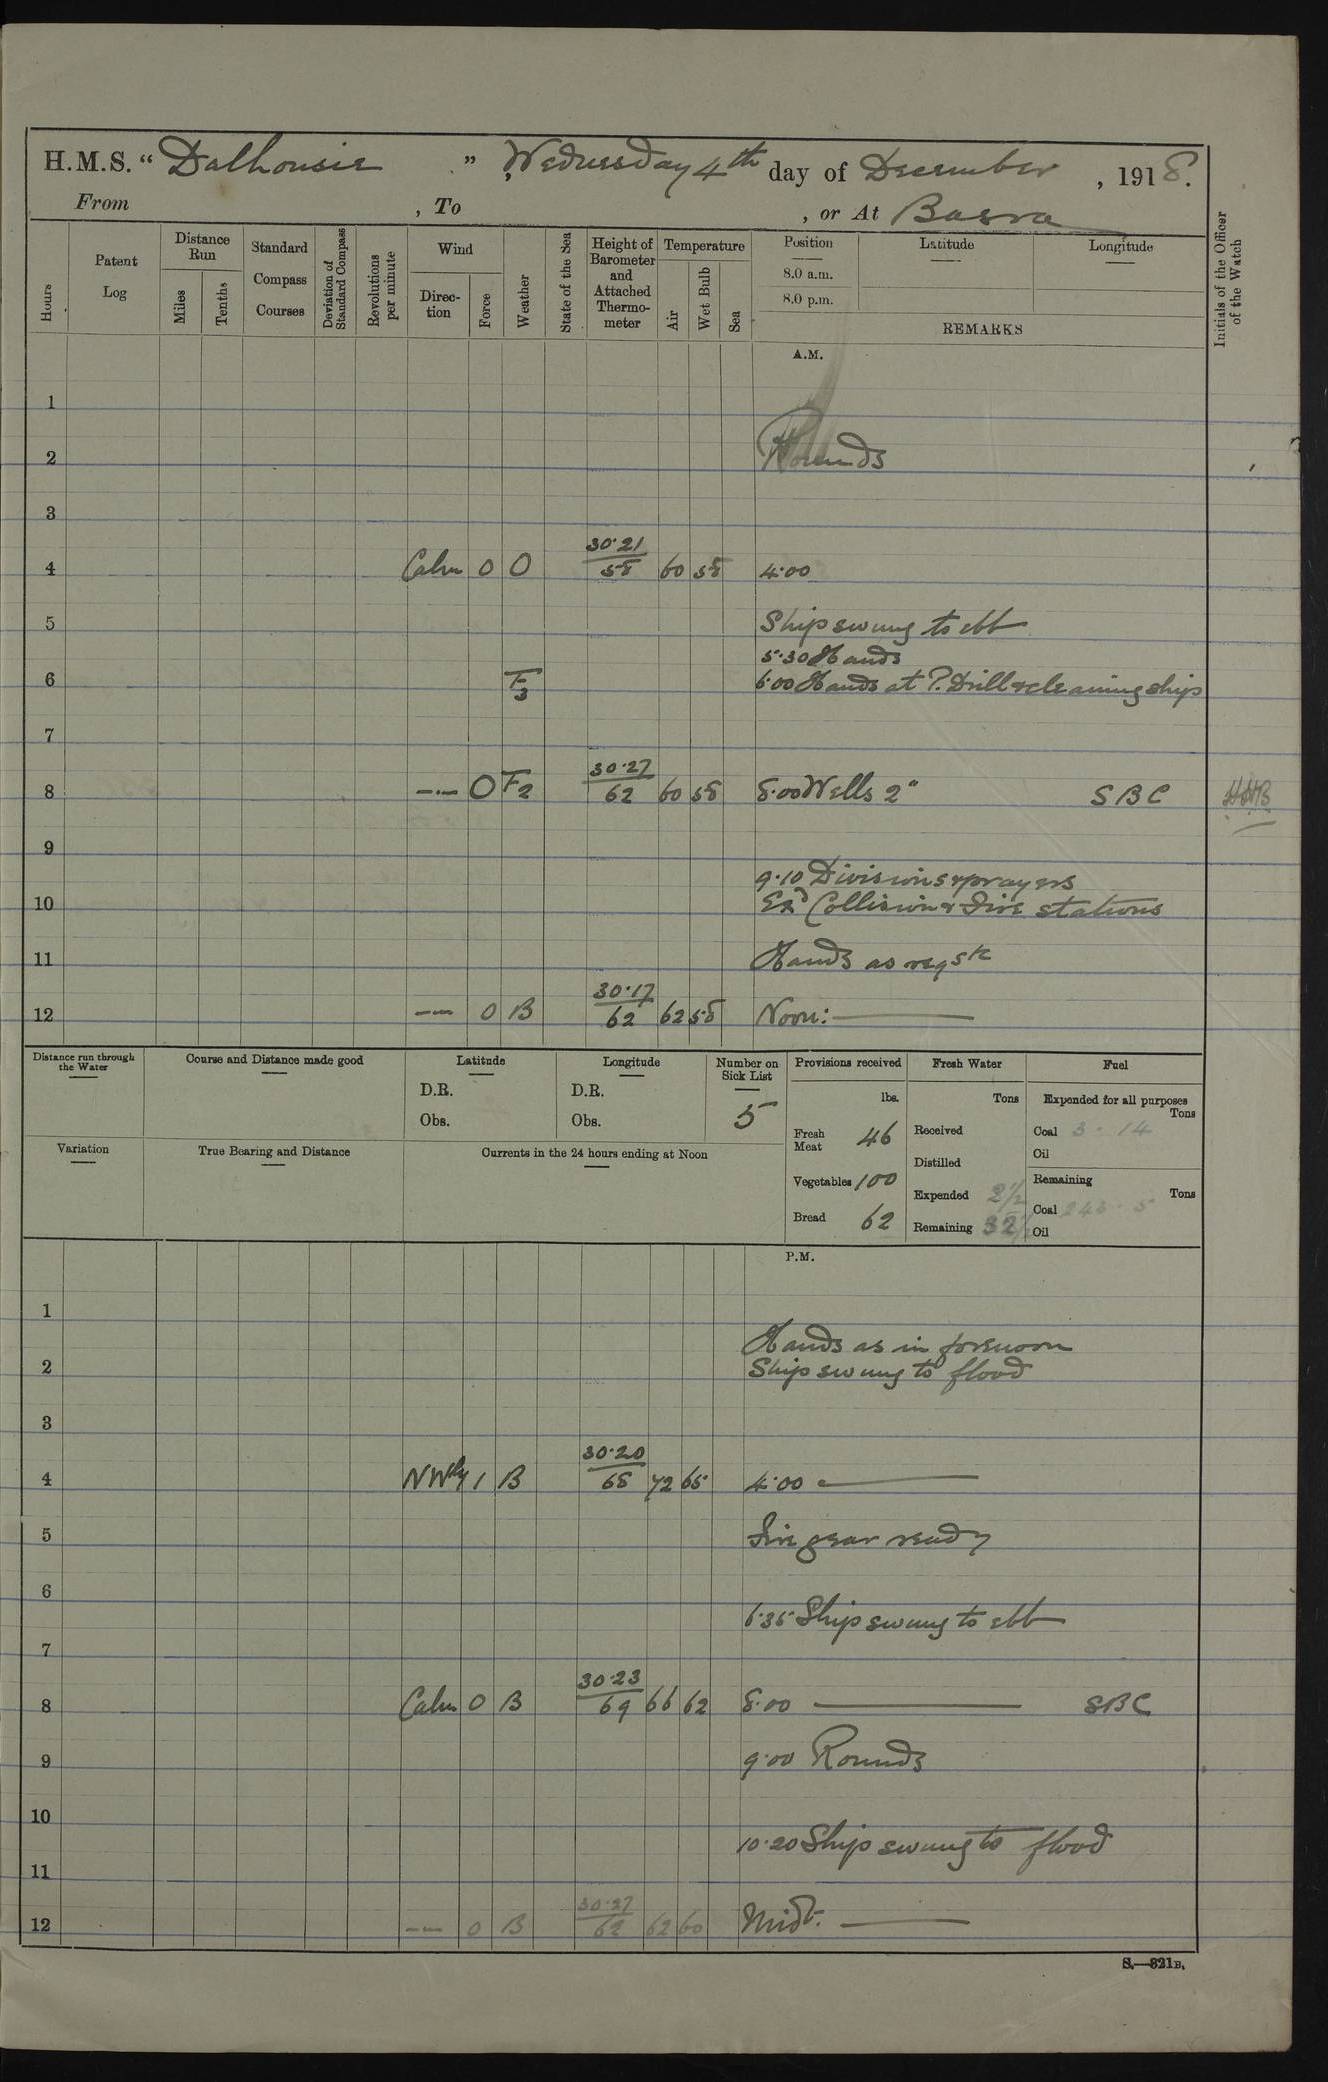 H.M.S. “ Dalhousie ” Wednesday 4th day of December , 1918.
From , To , or At Basra
Hours
Patent Log
Distance Run
Miles
Tenths
Standard Compass Courses
Deviation of Standard Compass
Revolutions per minute
Wind
Direc-tion
Force
Weather
State of the Sea
Height of Barometer and Attached Thermo-meter
Temperature
Air
Wet Bulb
Sea
Position
8.0 a.m.
8.0 p.m.
Latitude
Longitude
REMARKS
Initials of the Officer of the Watch
A.M.
1
2 Rounds
3
30·21
4 Calm 0 O 58 60 58 4·00
5 Ship swung to ebb
5·30 Hands
6 F3 6·00 Hands at P. Drill & cleaning ship
7
30·27
8 —·— 0 F2 62 60 58 8·00 Wells 2" SBC HHB
9
9·10 Divisions & prayers
10 Exd Collision & Fire stations
11 Hands as reqste
30·17
12 —— 0 B 62 62 58 Noon:
Distance run through the Water
Course and Distance made good
Latitude
D.R.
Obs.
Longitude
D.R.
Obs.
Number on Sick List
5
Provisions received
lbs.
Fresh Meat 46
Vegetables 100
Bread 62
Fresh Water
Tons
Received
Distilled
Expended 2½
Remaining 32½
Fuel
Expended for all purposes
Tons
Coal 3 · 14
Oil
Remaining
Tons
Coal
Oil
Variation
True Bearing and Distance
Currents in the 24 hours ending at Noon
P.M.
1
Hands as in forenoon
2 Ship swung to flood
3
30·20
4 NWly 1 B 68 72 65 4·00
5 Fire gear ready
6
6·35 Ship swung to ebb
7
30·23
8 Calm 0 B 69 66 62 8·00 SBC
9 9·00 Rounds
10
10·20 Ship swung to flood
11
30·27
12 —— 0 B 62 62 60 Midt.
S.—321B.